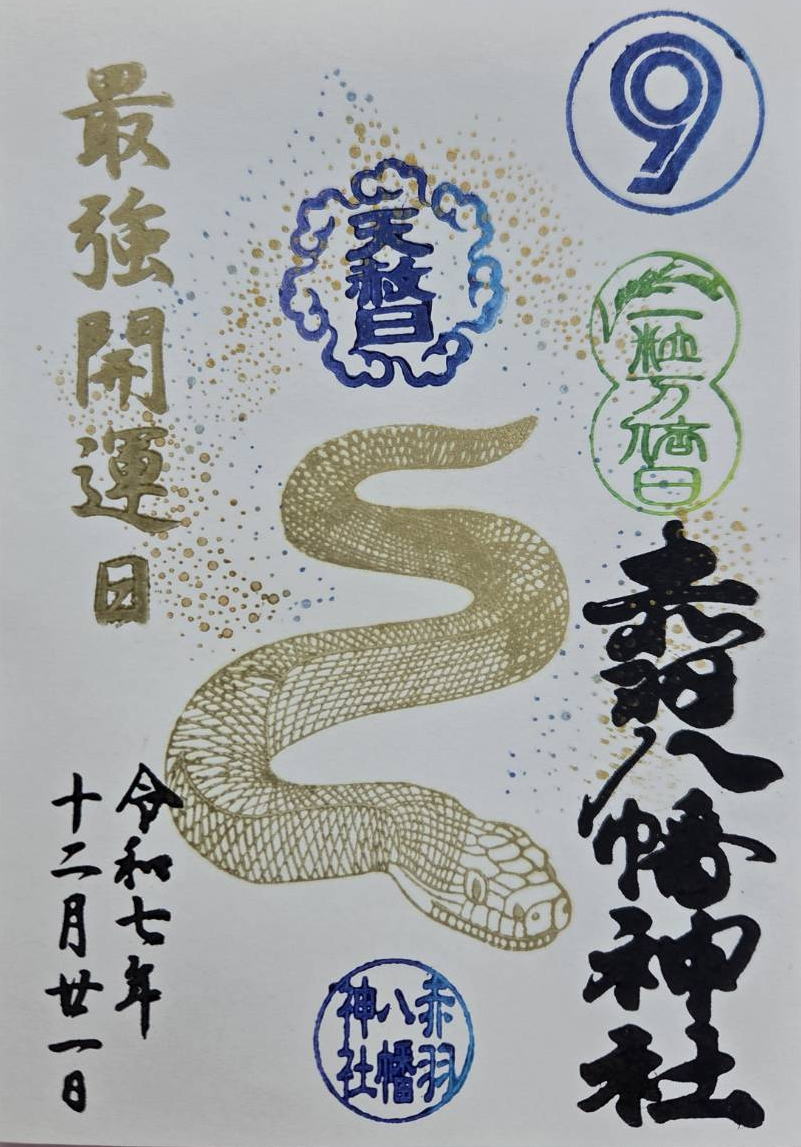 9
一粒万倍日
赤羽八幡神社
天赦日
最強開運日
令和七年
十二月廿一日
赤羽
八幡
神社